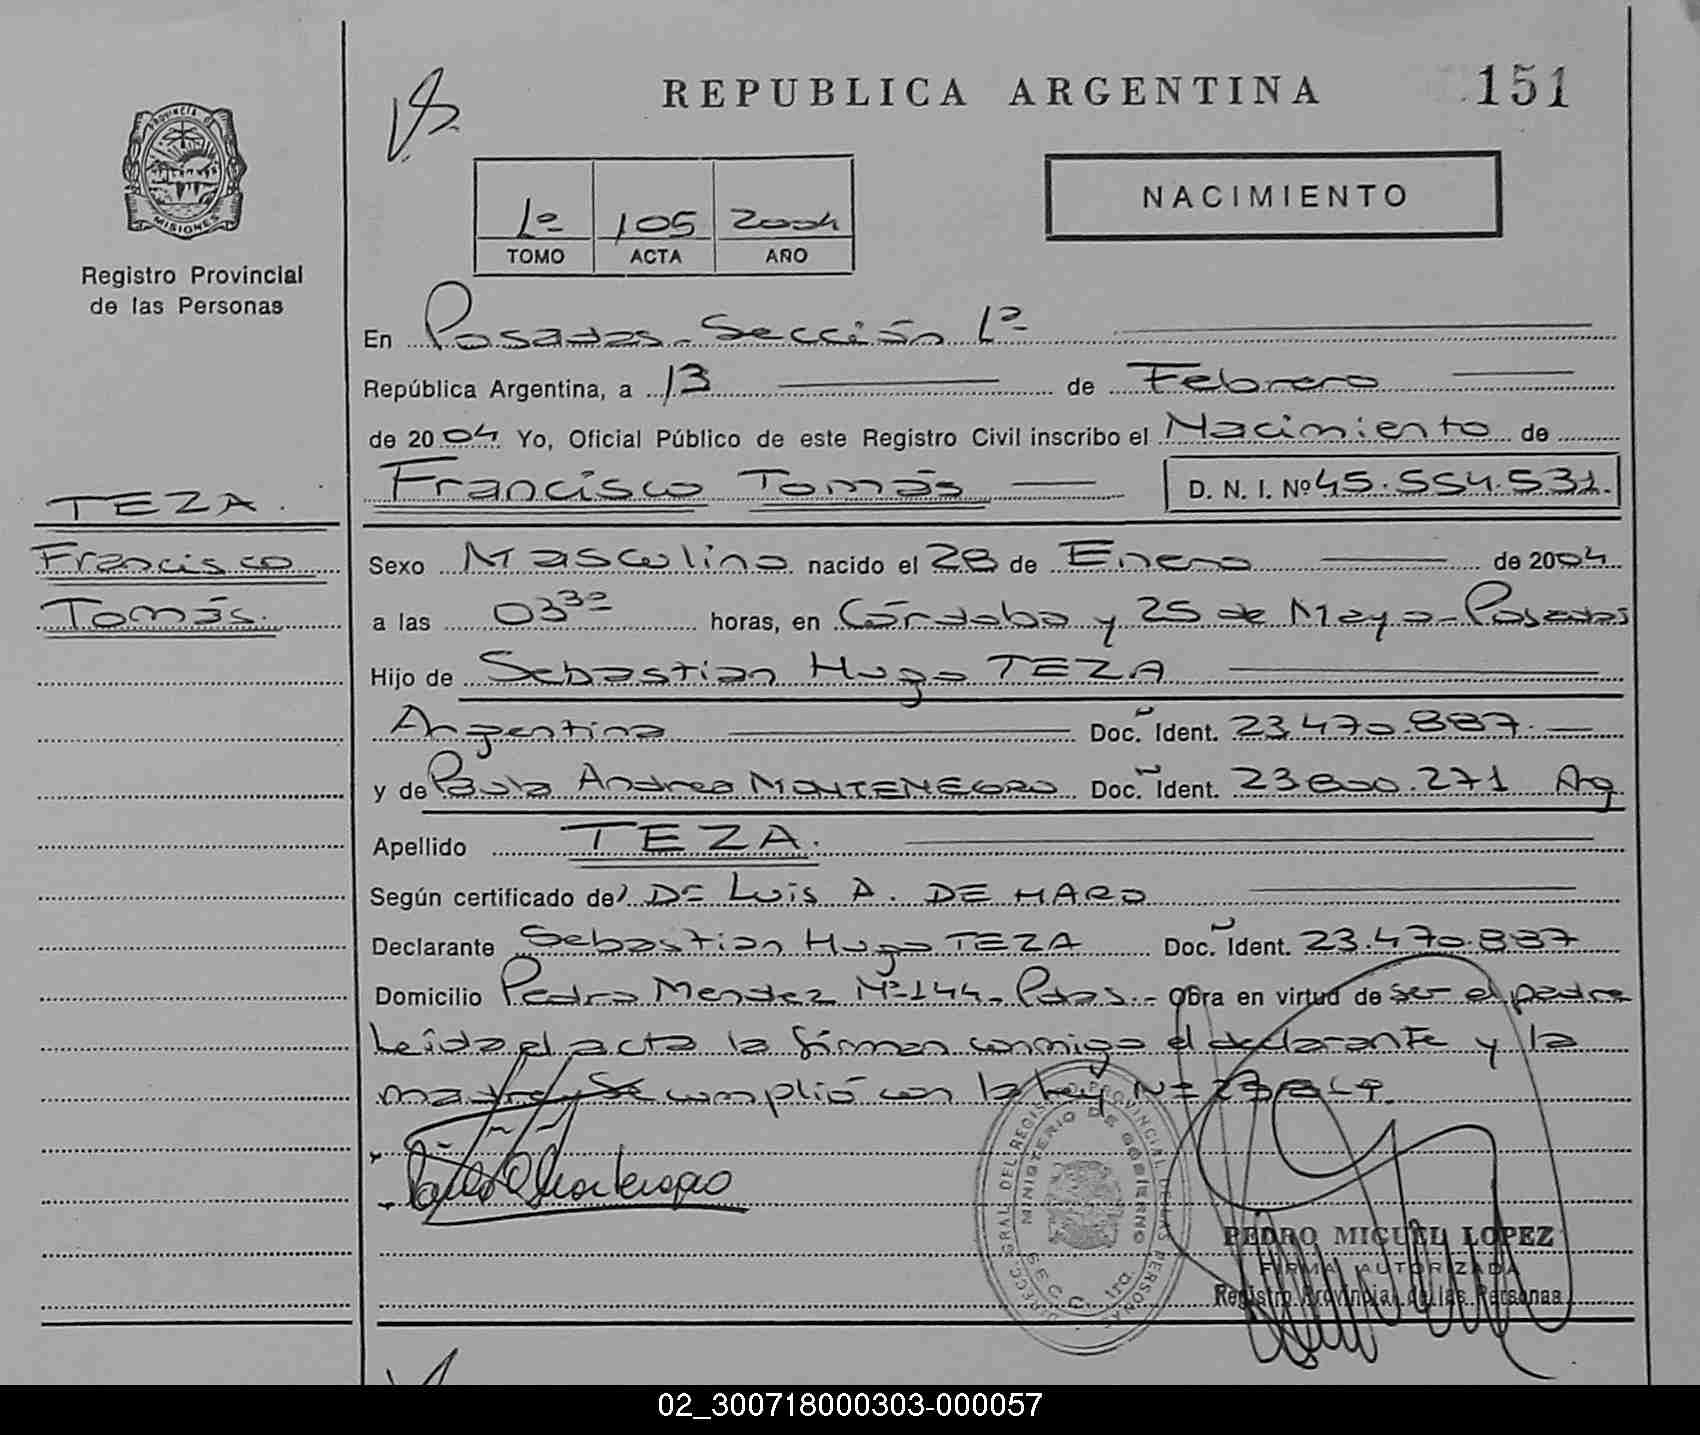 REPUBLICA ARGENTINA
151
PROVINCIA DE
MISIONES
Registro Provincial
de las Personas
1º 105 2004
TOMO ACTA AÑO
NACIMIENTO
En Posadas - Sección 1ª
República Argentina, a 13 de Febrero
de 2004 Yo, Oficial Público de este Registro Civil inscribo el Nacimiento de
Francisco Tomás D. N. I. Nº 45.554.531.
TEZA.
Francisco
Tomás.
Sexo Masculino nacido el 28 de Enero de 2004
a las 03 30 horas, en Córdoba y 25 de Mayo - Posadas
Hijo de Sebastian Hugo TEZA
Argentina Doc. Ident. 23.470.887.
y de Paula Andrea MONTENEGRO Doc. Ident. 23.800.271 Arg
Apellido TEZA.
Según certificado de Dr Luis A. DE HARO
Declarante Sebastian Hugo TEZA Doc. Ident. 23.470.887
Domicilio Pedro Mendez Nº 144 - Pdas. - Obra en virtud de ser el padre
Leída el acta la firman conmigo el declarante y la
madre Se cumplió con la Ley Nº
DIRECC. GRAL. DEL REGISTRO PROVINCIAL DE LAS PERSONAS
MINISTERIO DE GOBIERNO
SECC. 1ra.
PEDRO MIGUEL LOPEZ
FIRMA AUTORIZADA
Registro Provincial de las Personas
02_300718000303-000057